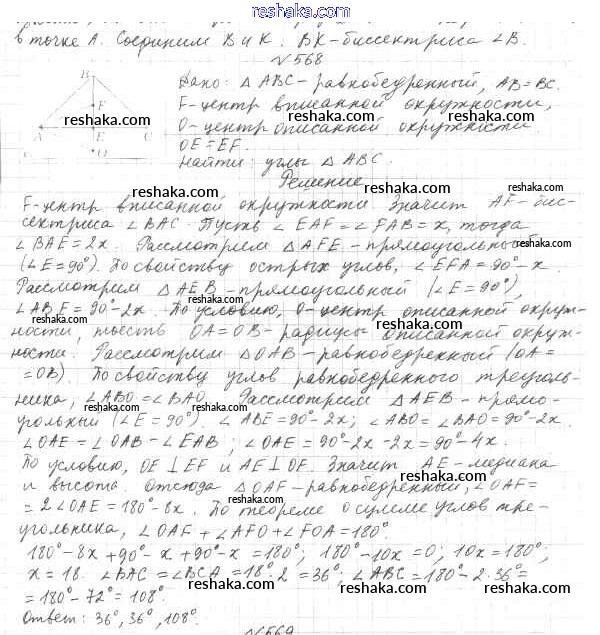 reshaka.com
в точке А. Соединим В и К. ВК-биссектриса ∠В.
№568
Дано: △ABC-равнобедренный, AB=BC.
F-центр вписанной окружности,
O-центр описанной окружности
OE=EF.
Найти: углы △ABC.
B
F
A E C
O
reshaka.com
reshaka.com
reshaka.com
reshaka.com
Решение
reshaka.com
F-центр вписанной окружности. Значит AF-бис-
сектриса ∠BAC. Пусть ∠EAF=∠FAB=x, тогда
∠BAE=2x. Рассмотрим △AFE-прямоугольный
reshaka.com
reshaka.com
(∠E=90°). По свойству острых углов, ∠EFA=90°-x.
Рассмотрим △AEB-прямоугольный (∠E=90°),
reshaka.com
∠ABE=90°-2x. По условию, O-центр описанной окруж-
reshaka.com
ности, тоесть OA=OB-радиусы описанной окруж-
reshaka.com
ности. Рассмотрим △OAB-равнобедренный (OA=
=OB). По свойству углов равнобедренного треуголь-
reshaka.com
ника, ∠ABO=∠BAO. Рассмотрим △AEB-прямо-
reshaka.com
угольный (∠E=90°). ∠ABE=90°-2x; ∠ABO=∠BAO=90°-2x.
∠OAE=∠OAB-∠EAB; ∠OAE=90°-2x-2x=90°-4x.
reshaka.com
По условию, OE⊥EF и AE⊥OF. Значит AE-медиана
reshaka.com
и высота. Отсюда △OAF-равнобедренный, ∠OAF=
=2∠OAE=180°-8x. По теореме о сумме углов тре-
reshaka.com
угольника, ∠OAF+∠AFO+∠FOA=180°.
reshaka.com
180°-8x+90°-x+90°-x=180°; 180°-10x=0; 10x=180°;
reshaka.com
x=18. ∠BAC=∠BCA=18°·2=36°; ∠ABC=180°-2·36°=
reshaka.com
=180°-72°=108°.
reshaka.com
Ответ: 36°, 36°, 108°.
reshaka.com
№569